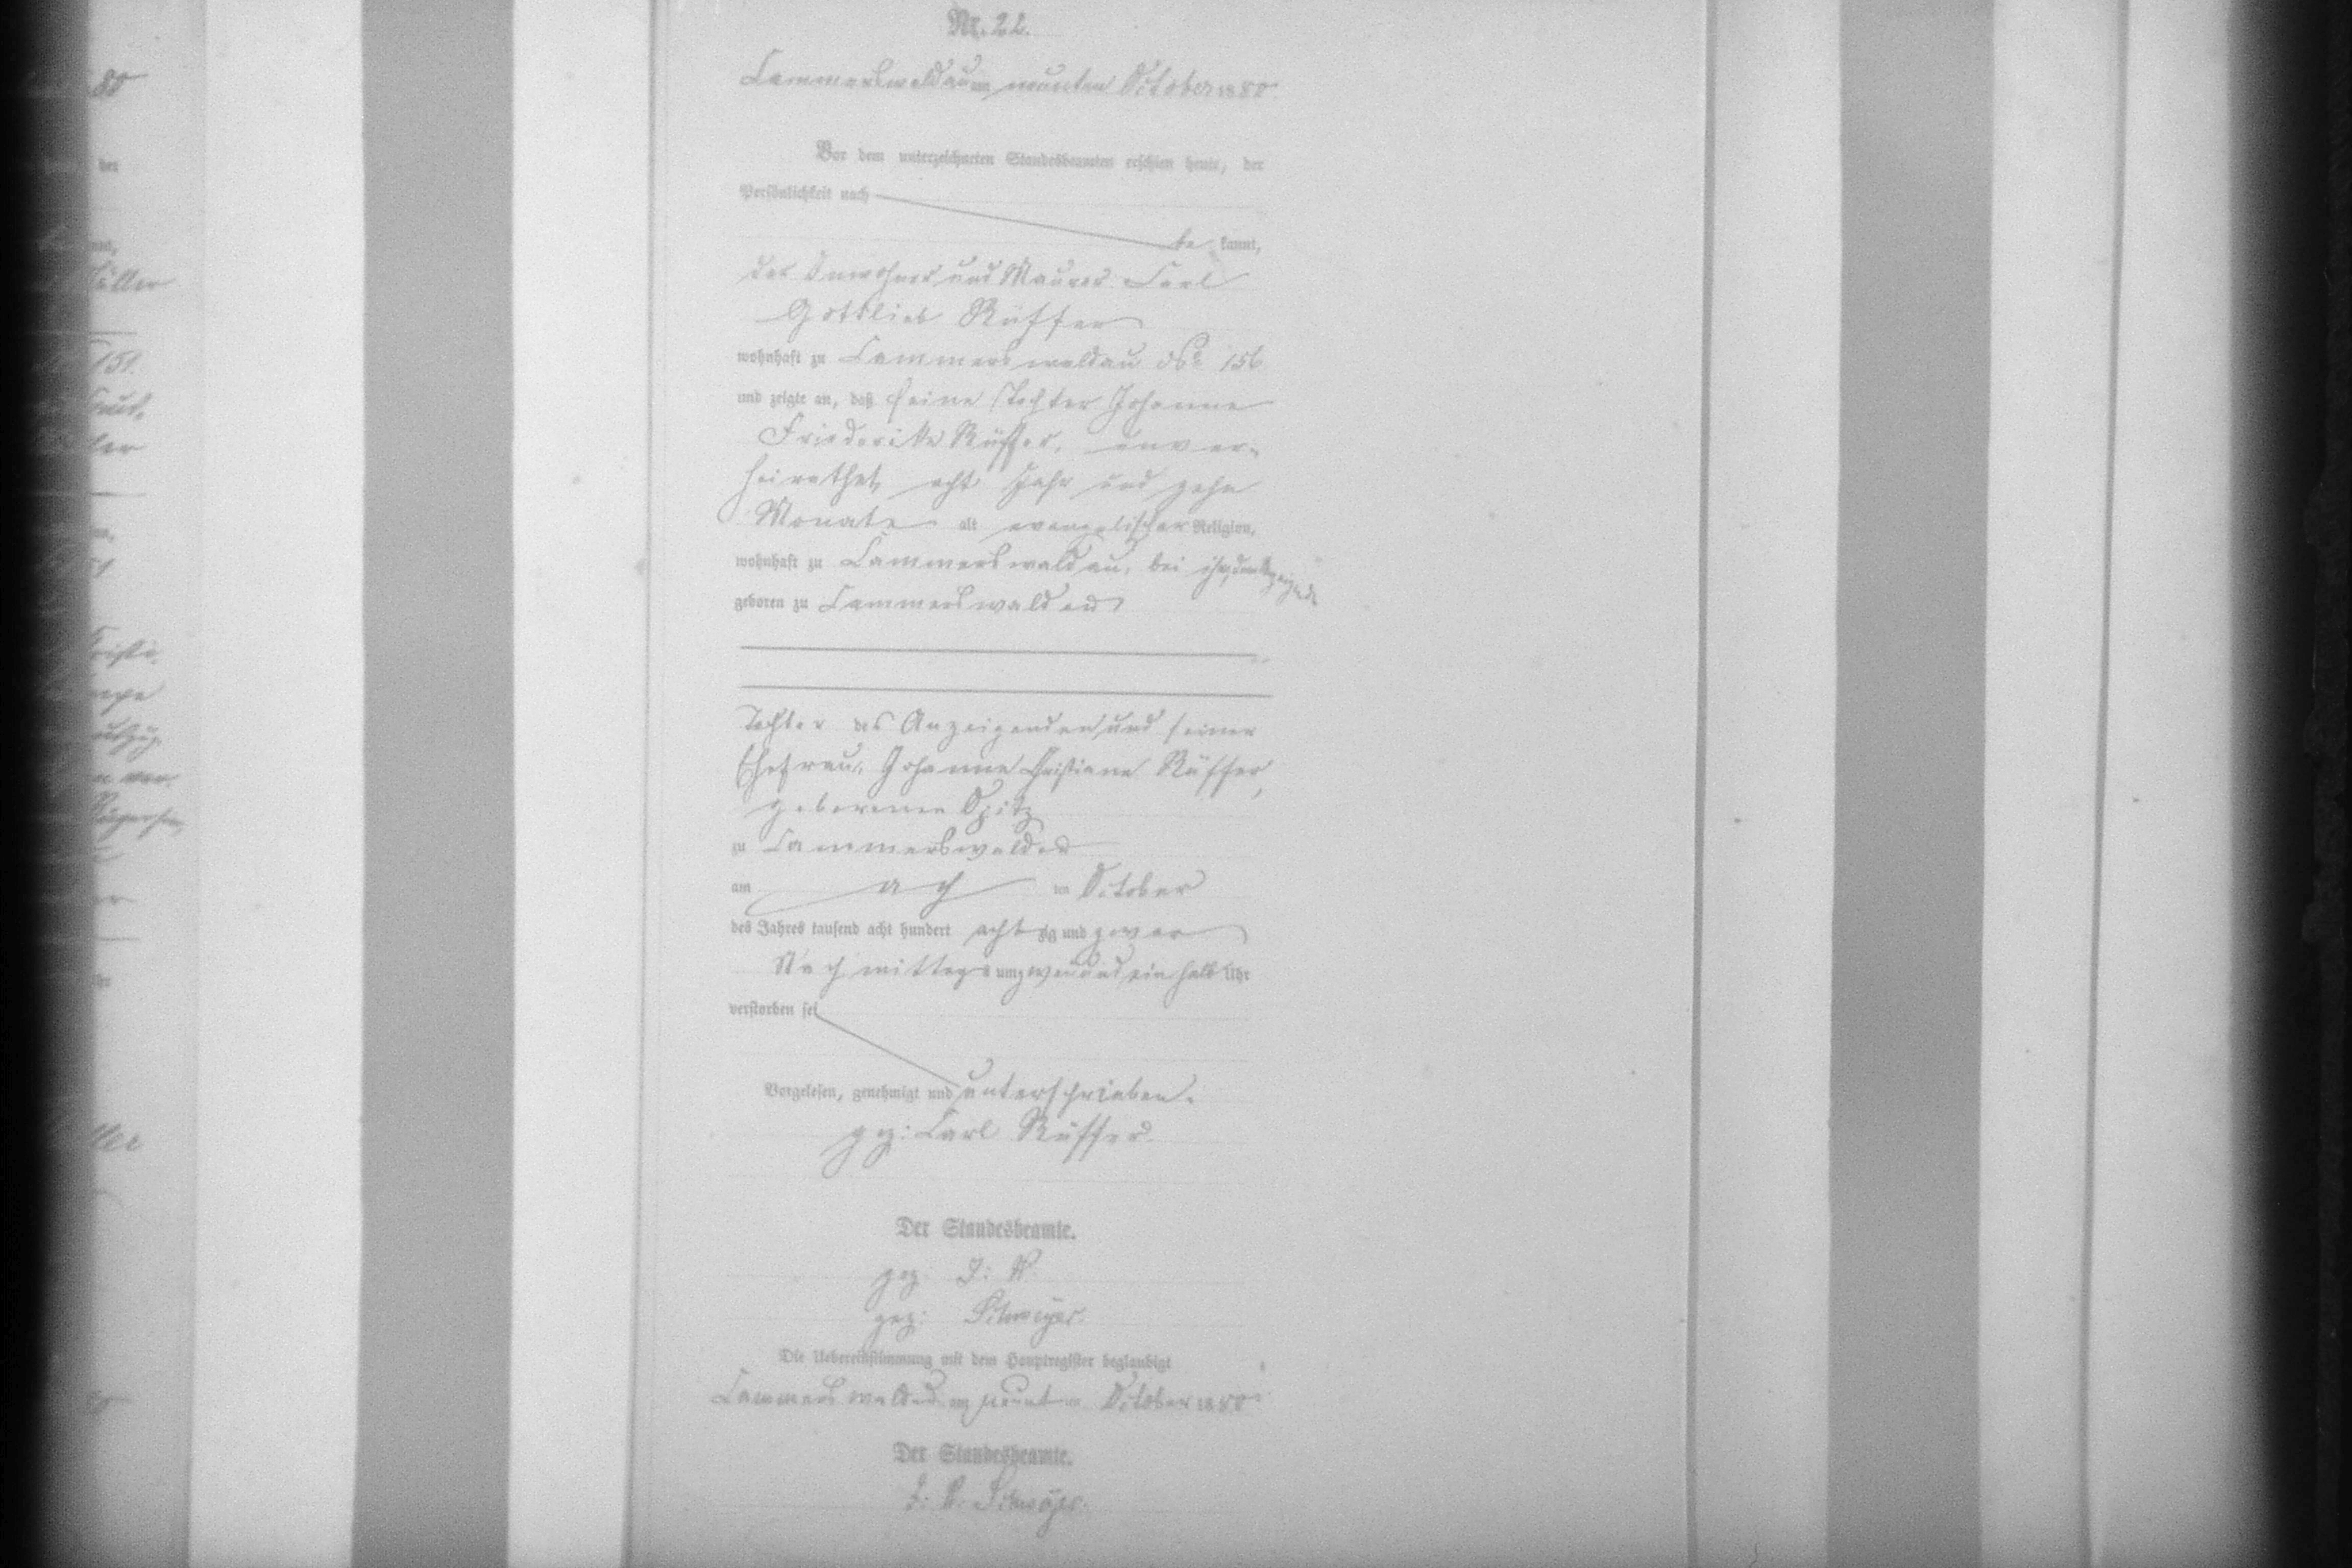 80
der
Müller
151.
ler
Nr. 22.
Kammerswaldau am neunten October 1880.
Vor dem unterzeichneten Standesbeamten erschien heute, der
Persönlichkeit nach
be kannt,
der Inwohner und Maurer Carl
Gottlieb Rüffer
wohnhaft zu Kammerswaldau No 156
und zeigte an, daß seine Tochter Johanne
Friederike Rüffer, unver-
heirathet, acht Jahr und zehn
Monate alt evangelischer Religion,
wohnhaft zu Kammerswaldau, bei ihm, dem Anzeigenden
geboren zu Kammerswaldau
Tochter des Anzeigenden und seiner
Ehefrau, Johanne Christiane Rüffer,
geborenen Opitz
zu Kammerswaldau
am ach ten October
des Jahres tausend acht hundert acht zig und zwar
Nachmittags um zwei und ein halb Uhr
verstorben sei
Vorgelesen, genehmigt und unterschrieben.
gez: Carl Rüffer.
Der Standesbeamte.
gez. J: V.
gez:
Die Uebereinstimmung mit dem Hauptregister beglaubigt
Kammerswaldau am neunten October 1880
Der Standesbeamte.
J: V.